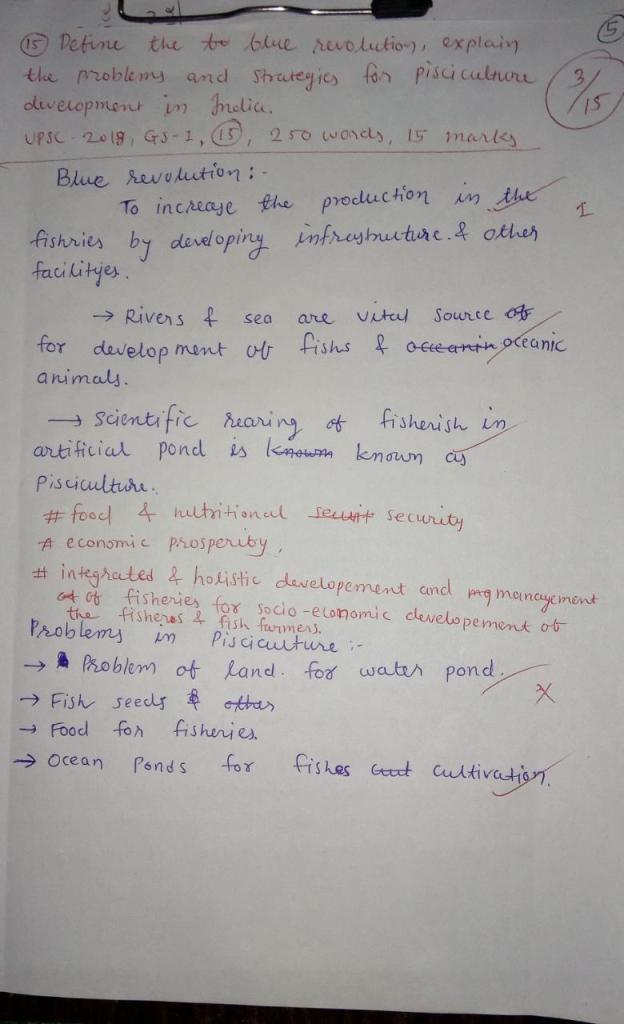 5
15 Define the to blue revolution, explain
the problems and strategies for pisciculture
development in India.
3/15
UPSC 2018, GS-1, 15, 250 words, 15 marks
Blue revolution :-
To increase the production in the
fishries by developing infrastructure & other
facilityes.
1
→ Rivers & sea are vital source of
for development of fishs & oceanic
animals.
→ Scientific rearing of fisherish in
artificial pond is known known as
Pisciculture.
# food & nutritional security
# economic prosperity,
# integrated & holistic developement and management
of fisheries for socio-economic developement of
the fisheros & fish farmers.
Problems in Pisciculture :-
→ Problem of land. for water pond.
X
→ Fish seeds & other
→ Food for fisheries
→ Ocean Ponds for fishes cultivation.